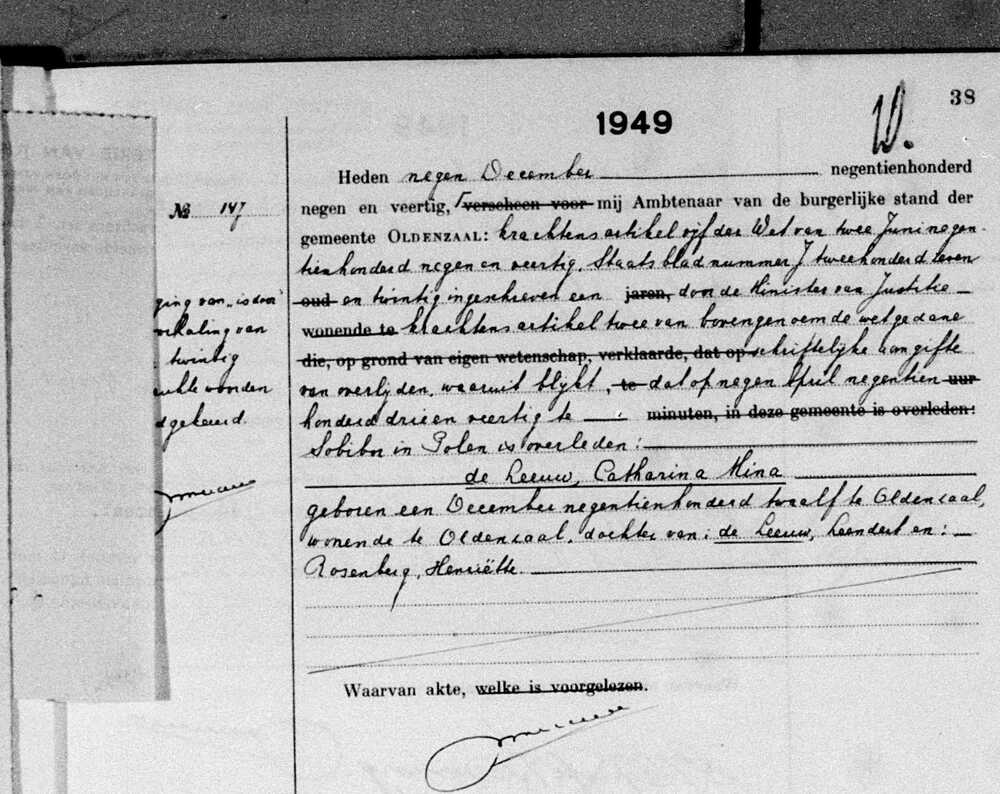 38
1949
W.
Heden negen December negentienhonderd
No 147
negen en veertig, ⌈verscheen voor mij Ambtenaar van de burgerlijke stand der
gemeente OLDENZAAL: krachtens artikel vijf der Wet van twee Juni negen-
tienhonderd negen en veertig, Staatsblad nummer J tweehonderd zeven
oud en twintig ingeschreven een jaren, door de Minister van Justitie
wonende te krachtens artikel twee van bovengenoemde wet gedane
die, op grond van eigen wetenschap, verklaarde, dat op schriftelijke aangifte
van overlijden, waaruit blijkt, te dat op negen April negentien uur
honderd drie en veertig te minuten, in deze gemeente is overleden:
Sobibor in Polen is overleden:
de Leeuw, Catharina Mina
geboren een December negentienhonderd twaalf te Oldenzaal,
wonende te Oldenzaal, dochter van: de Leeuw, Leendert en:
Rosenberg, Henriëtte.
ging van „is door"
rhaling van
twintig
worden
dgekeurd.
Waarvan akte, welke is voorgelezen.